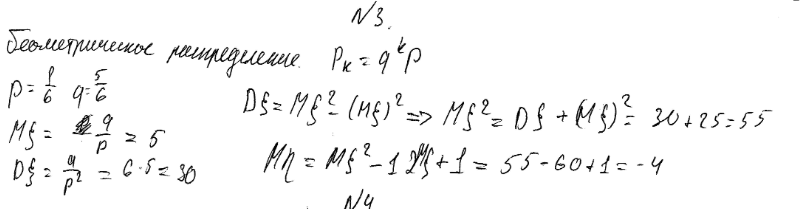 №3.
Геометрическое распределение. Pₖ = qᵏp
p = 1/6 q = 5/6
Mξ = q/p = 5
Dξ = q/p² = 6·5 = 30
Dξ = Mξ² - (Mξ)² => Mξ² = Dξ + (Mξ)² = 30 + 25 = 55
Mη = Mξ² - 12Mξ + 1 = 55 - 60 + 1 = -4
№4